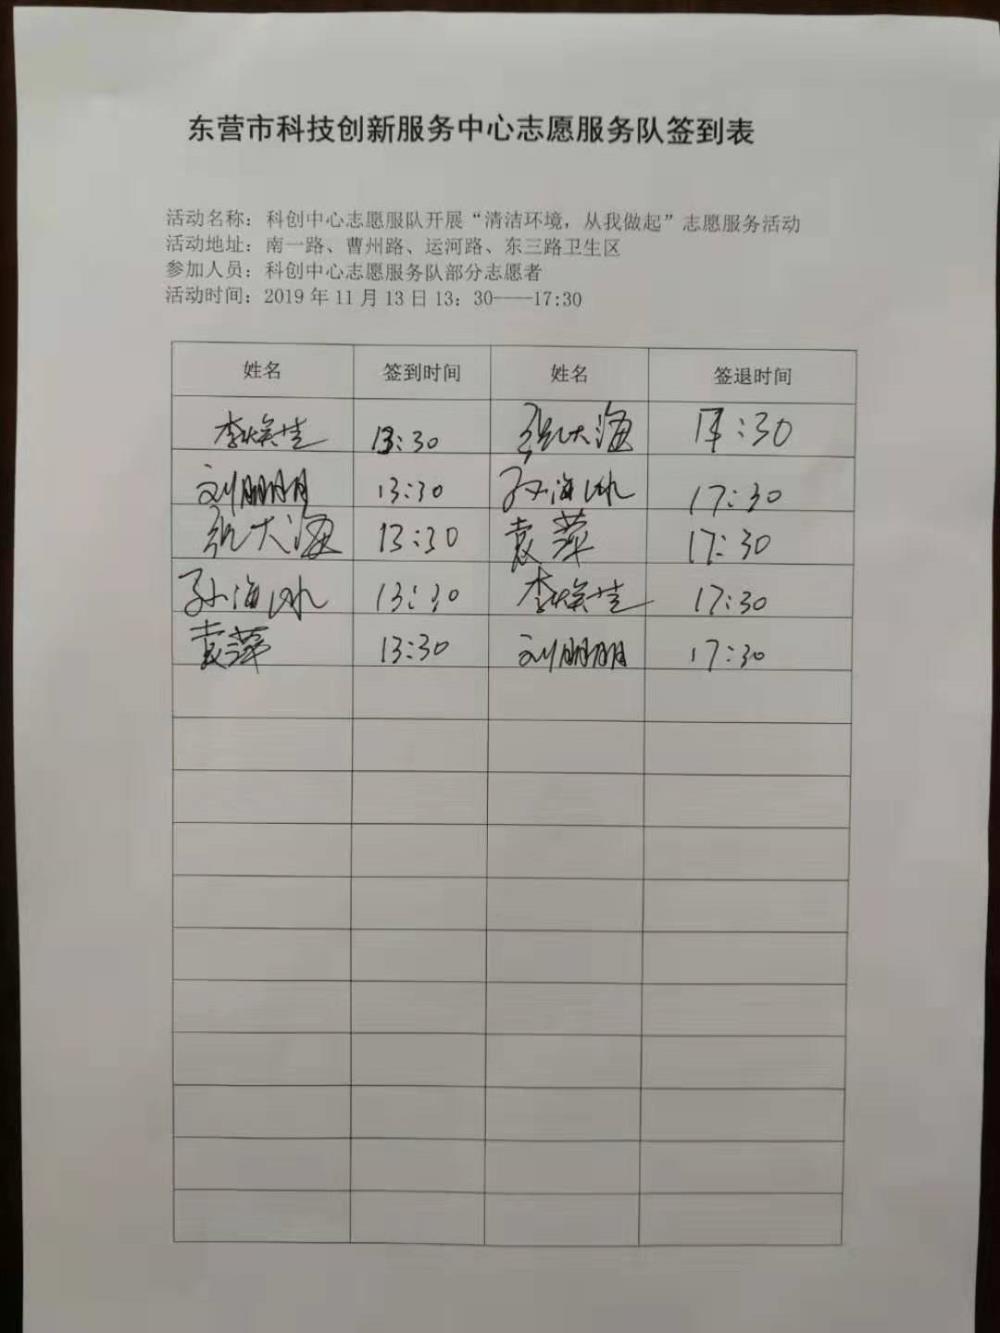 东营市科技创新服务中心志愿服务队签到表
活动名称：科创中心志愿服队开展“清洁环境，从我做起”志愿服务活动
活动地址：南一路、曹州路、运河路、东三路卫生区
参加人员：科创中心志愿服务队部分志愿者
活动时间：2019年11月13日13：30----17:30
姓名 签到时间 姓名 签退时间
李焕芝 13:30 张大海 17:30
刘朋朋 13:30 孙海 17:30
张大海 13:30 袁萍 17:30
孙海 13:30 李 17:30
袁萍 13:30 刘朋朋 17:30